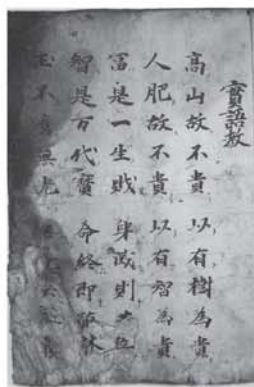 實語教
高山故不貴 以有樹為貴
人肥故不貴 以有智為貴
冨是一生財 身滅則共
智是万代寳 命終即
玉不磨無光